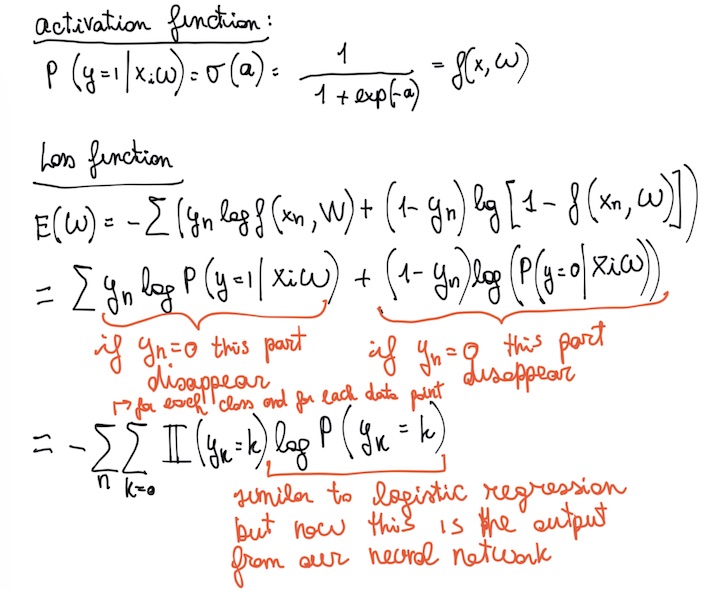 activation function:
P(y=1|x;ω) = σ(a) = 1 / (1 + exp(-a)) = f(x,ω)
Loss function
E(ω) = -∑(yn log f(xn,W) + (1-yn) log[1 - f(xn,ω)])
= ∑ yn log P(y=1|x;ω) + (1-yn) log(P(y=0|x;ω))
if yn=0 this part
disappear
if yn=0 this part
disappear
↦ for each class and for each data point
= - ∑n ∑k=0 𝕀(yk=k) log P(yk = k)
similar to logistic regression
but now this is the output
from our neural network